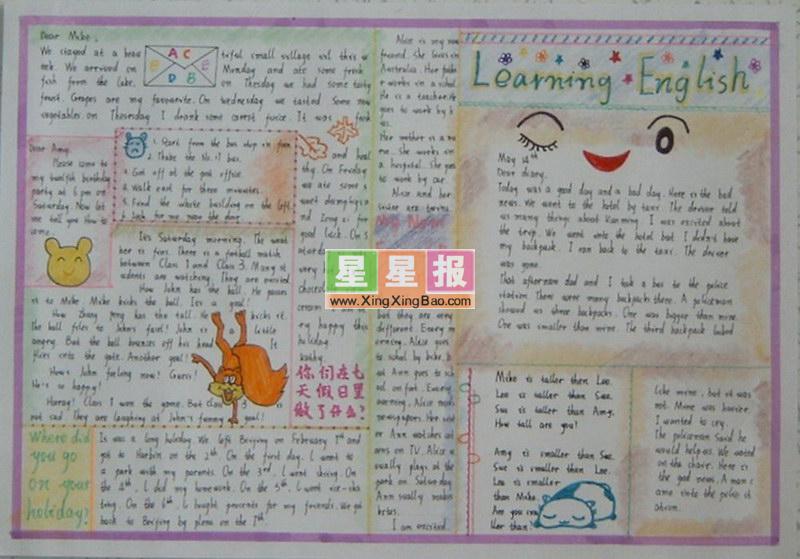 Learning English
Dear Mike,
We stayed at a beau
tiful small village
A C
E B
D B
We arrived on
Monday and ate some fresh
fish from the lake.
On Thesday we had some tasty
fruit. Grapes are my favourite. On wednesday we tasted some new
vegetables on Thoresday I drank some carrot juice. It was
Dear Amy,
Please come to
my twelfth birthday
party at 6 pm on
Saturday. Now let
me tell you How to
come.
1. Start from the bus stop
2. Thake the No.11 bus.
3. Get off at the post office.
4. Walk east for three minutes.
5. Find the white building on the left.
6. Look for me near the door.
and heal
thy. On Friday
we ate some
good luck. On S
aturday
very
ery happy this
holiday.
Kathy.
It's Saturday morning. The weat
her is fine. There is a football match
between Class 1 and Class 3. Many st
udents are watching. They are excited
How John has the ball. He passes
it to Mike. Mike kicks the ball. It's a goal!
How Zhang Peng has the ball. He kicks it.
The ball flies to John's face! John is a little
angry. But the ball bounces off his head. It
flies into the gate. Another goal!
How's John feeling now? Guess!
He's so happy!
Hooray! Class 1 won the game. But Class 3 is
not sad. They are laughing at John's funny goal!
你们在七
天假日里
做了什么?
Where did
you go
on your
holiday?
It was a long holiday. We left Beijing on February 1st and
got to Harbin on the 2nd. On the first day. I went to
a park with my parents. On the 3rd, I went skiing. On
the 4th, I did my homework. On the 5th, I went ice-ska
ting. On the 6th, I bought presents for my friends. We got
back to Beijing by plane on the 7th.
Alice is my new
friend. She lives in
Australia. Her fathe
r works in a school.
He is a teacher. He
goes to work by b
Her mother is a nu
rse. She works in
a hospital. She goes
to work by car
Alice and her
sister are twins.
My New
but they are very
different. Every m
orning. Alice goes
to school by bike, b
ut Ann goes to sch
ool on foot. Every
evening, Alice reads
newspapers. Her sister
Ann watches cart
oons on TV. Alice us
ually plays
park on Saturday
Ann usually makes
kites.
I am excited.
May 14th
Dear diary.
Today was a good day and a bad day. Here is the bad
news. We went to the hotel by taxi. The driver told
us many things about Kunming. I was excited about
the trip. We went into the hotel but I didn't have
my backpack. I ran back to the taxi. The driver
was gone.
That afternoon dad and I took a bus to the police
station. There were many backpacks there. A policeman
showed us three backpacks. One was bigger than mine.
One was smaller than mine. The third backpack looked
Mike is taller than Lee.
Lee is taller than Sue.
Sue is taller than Amy.
How tall are you?
Amy is smaller than Sue.
Sue is smaller than Lee.
Lee is smaller
than Mike.
Are you
ller than?
like mine, but it was
not. Mine was heavier.
I wanted to cry.
The policeman said he
would help us. We waited
on the chair. Here is
the good news. A man c
ame into the police st
ation.
星星报
www.XingXingBao.com